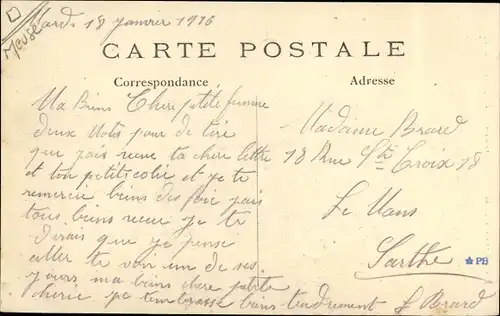 Meuse
Mardi 18 janvier 1916
CARTE POSTALE
Correspondance
Adresse
Ma Biens Chere petite femme
deux Mots pour de dire
que jais recue ta chere lettre
et ton petit colie et je te
remercie biens des foie jais
tous biens recue je te
dirais que je pense
aller te voir un de ses
jours ma biens chere petite
cherie je tembrasse biens tendrement f Brard
Madame Brard
18 Rue Ste Croix 18
Le Mans
Sarthe
PB